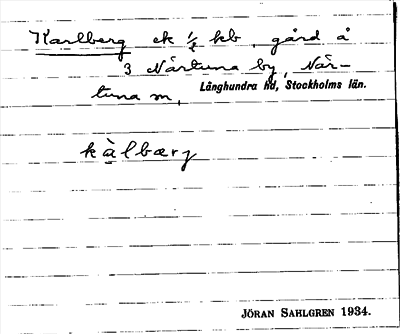 Karlberg ek ½ kb, gård å
3 Närtuna by, När-
tuna sn,
Långhundra hd, Stockholms län.
kàlbærj
JÖRAN SAHLGREN 1934.